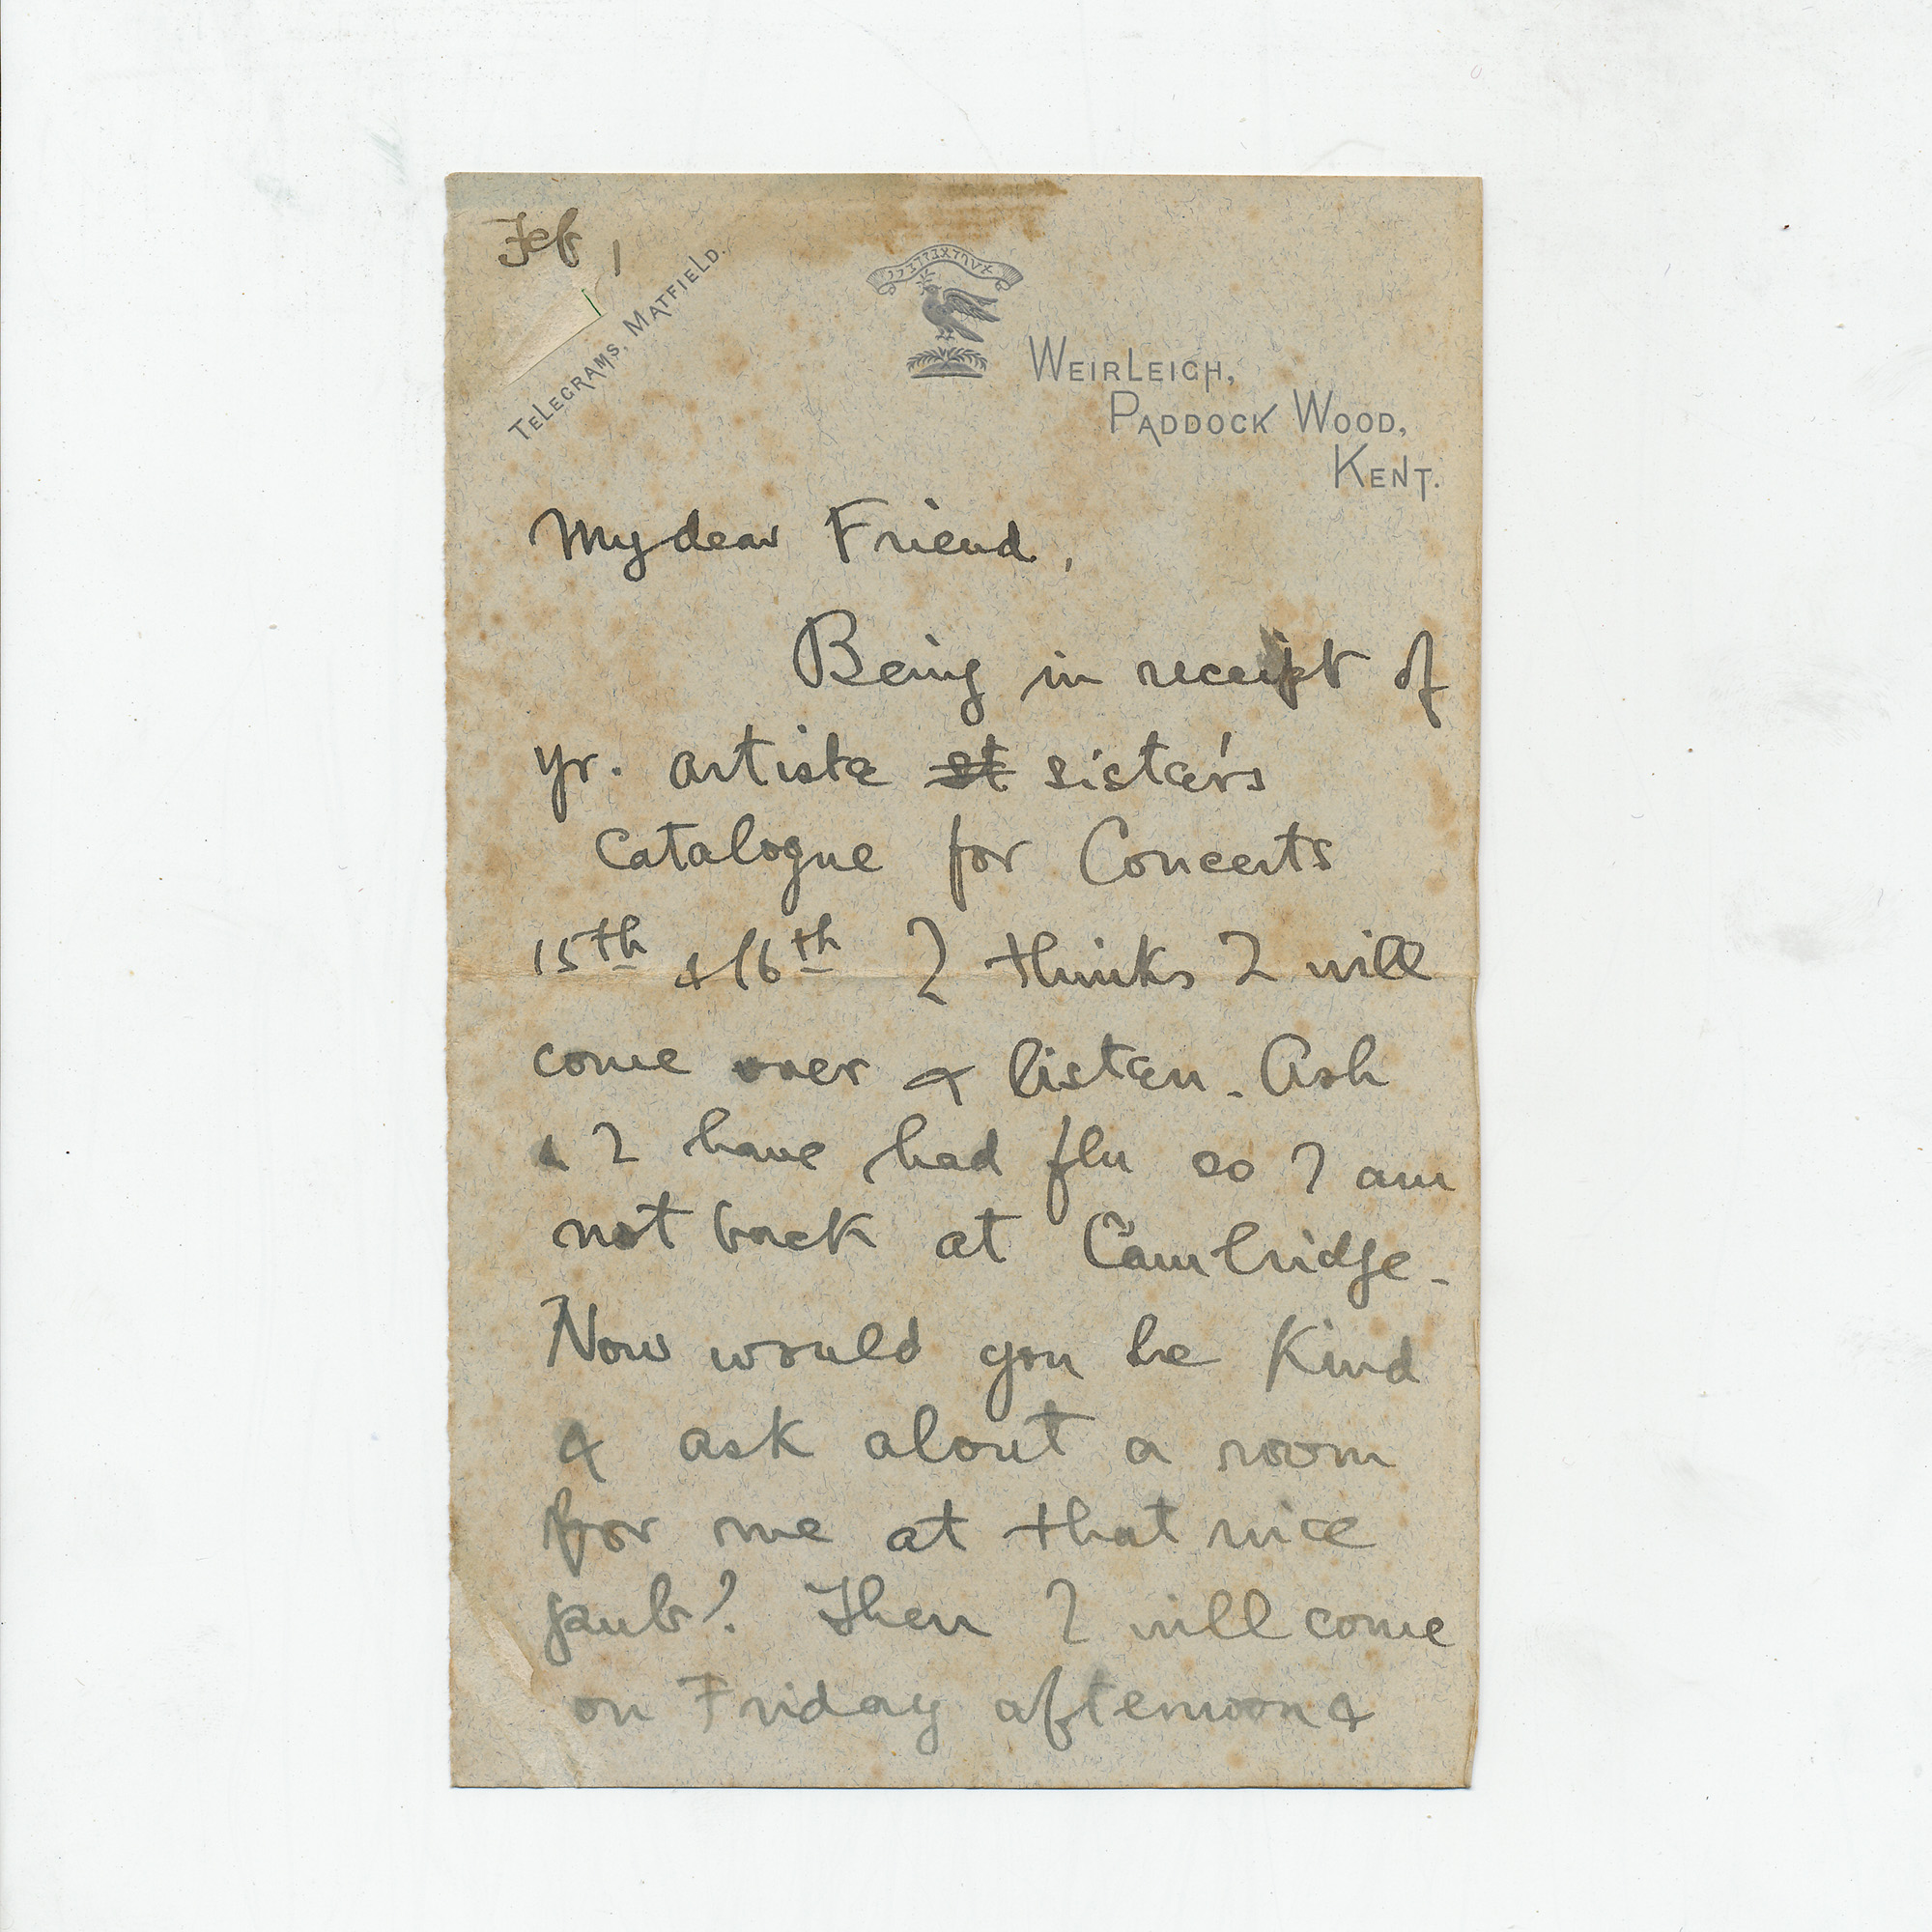 Feb 1
TELEGRAMS, MATFIELD.
WEIRLEIGH,
PADDOCK WOOD,
KENT.
My dear Friend,
Being in receipt of
yr. artiste st sister's
Catalogue for Concerts
15th & 16th I thinks I will
come over & listen. Ash
& I have had flu so I am
not back at Cambridge.
Now would you be Kind
& ask about a room
for me at that nice
pub? Then I will come
on Friday afternoon &